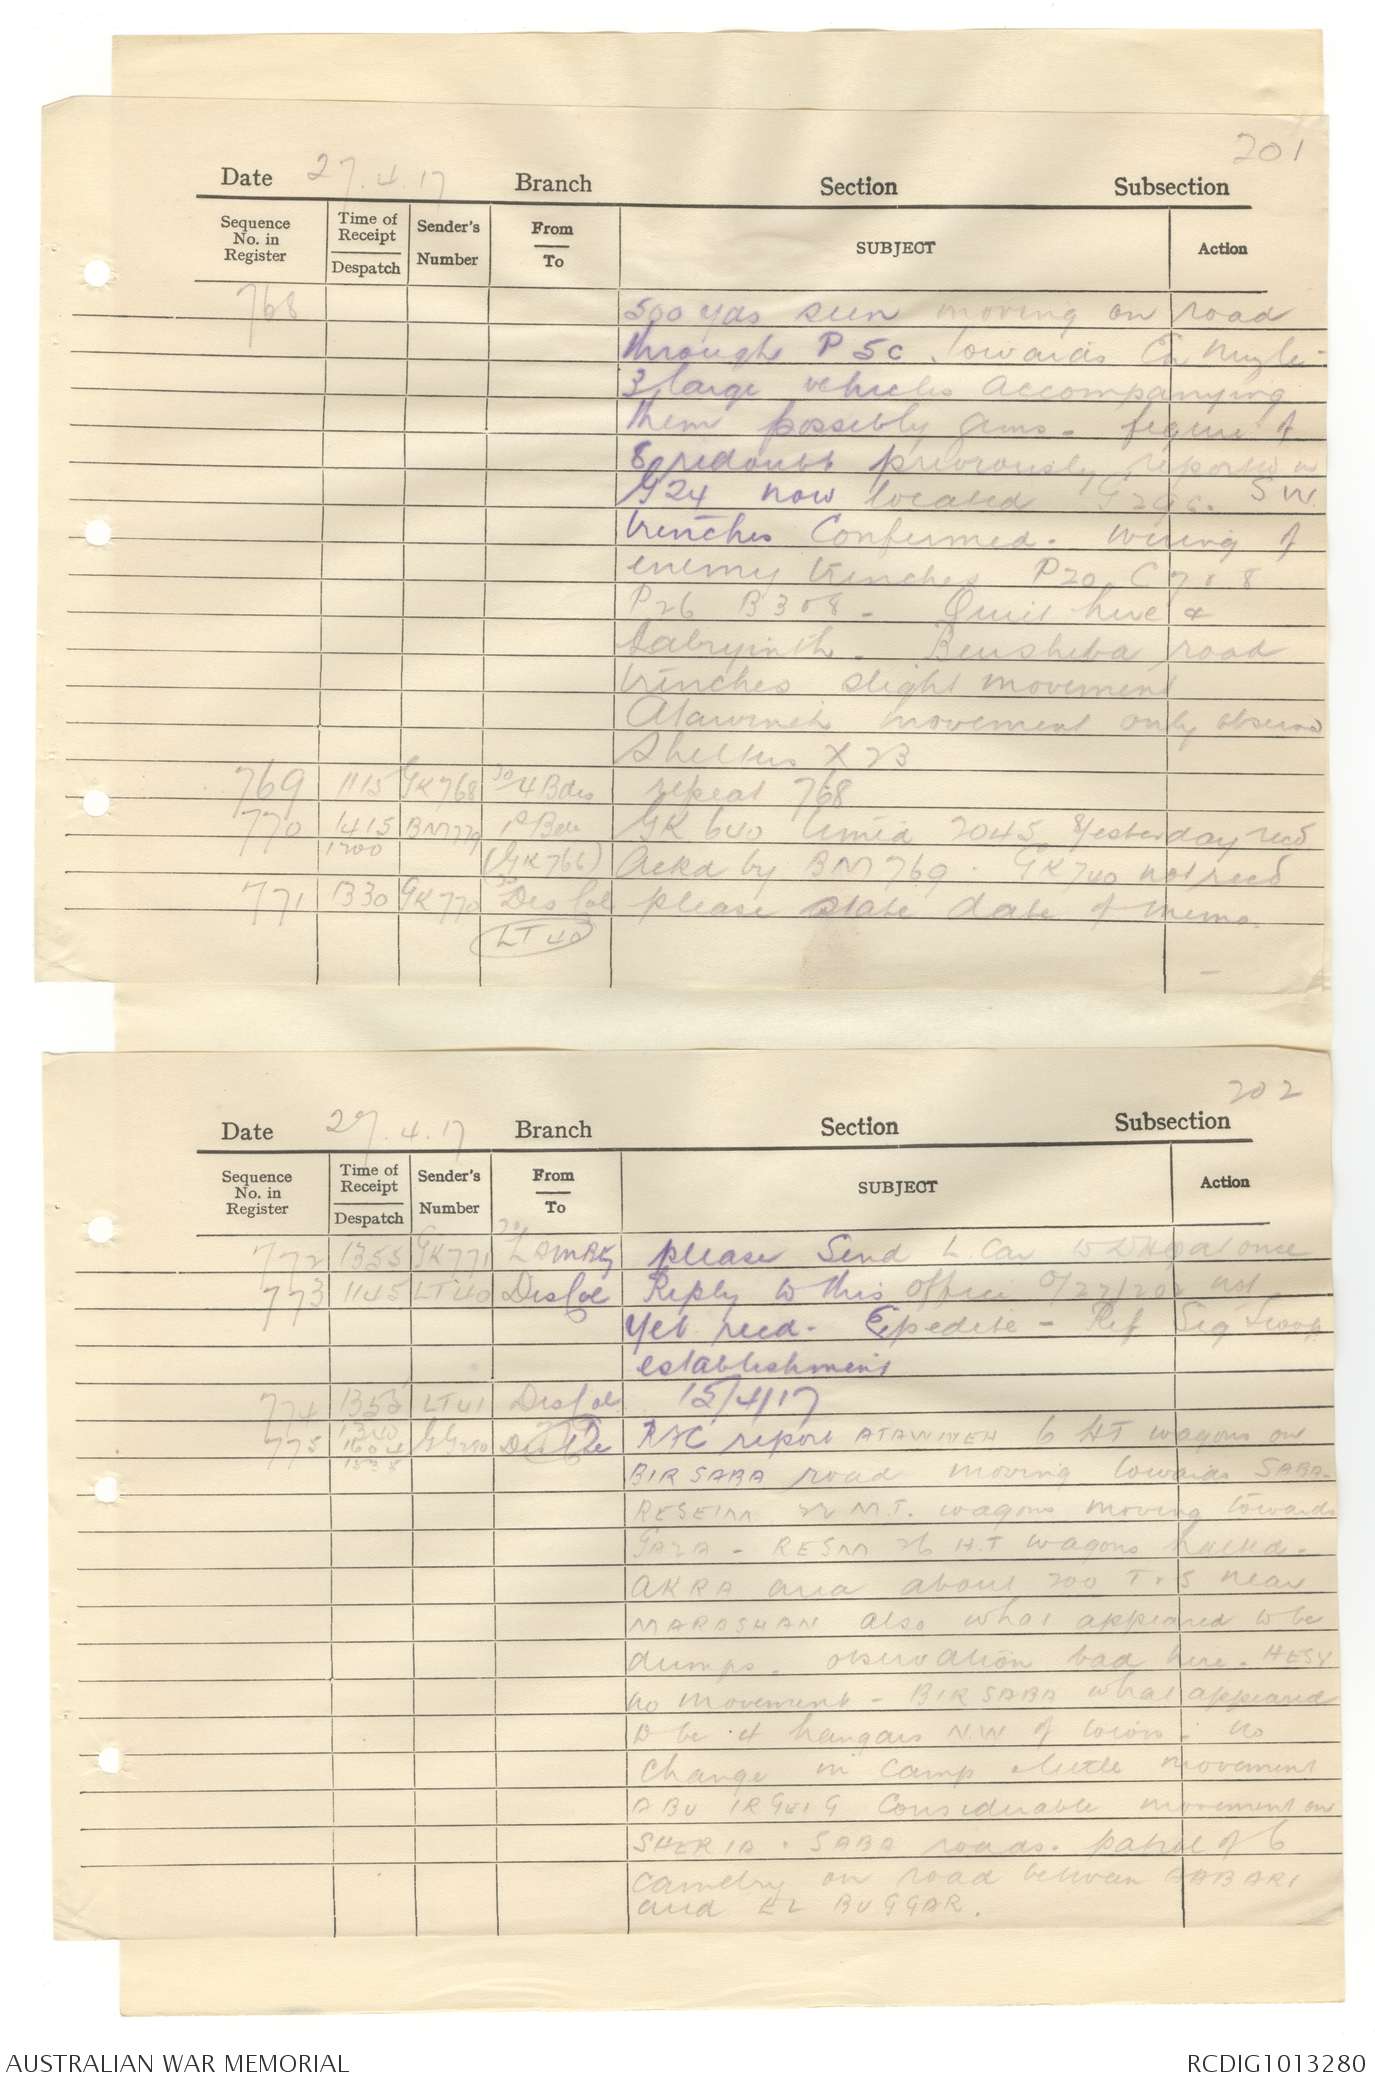 201
Date 27.4.17 Branch Section Subsection
Sequence No. in Register
Time of Receipt
Despatch
Sender's Number
From
To
SUBJECT
Action
768 500 yds seen moving on road
through P5c towards
3 large vehicles accompanying
them possibly guns. figure of
8 redoubt previously reported in
G24 now located . SW
trenches Confirmed. wiring of
enemy trenches P20.C 7 8
P26 B 3 8 - Quiet here &
Labryinth. Beersheba road
trenches slight movement
Atawineh movement only observed
Shelters X 23
769 1115 GK768 to 4 Bdes repeat 768
770 1415 BM779 1st Bde GK 640 timed 2045 yesterday recd
1200 (GK766) Ackd by BM769. GK740 not recd
771 1330 GK770 to Descol please state date of memo.
LT40
202
Date 27.4.17 Branch Section Subsection
Sequence No. in Register
Time of Receipt
Despatch
Sender's Number
From
To
SUBJECT
Action
772 1355 GK771 to please Send L. Car to DHQ at once
773 1145 LT40 Descol Reply to this office not
yet recd. Expedite - Ref Sig Troop
establishment
774 1355 LT41 Descol 15/4/17
1340
775 1604 RFC report ATAWINEH 6 HT wagons on
BIR SABA road moving towards SABA-
22 M.T. wagons moving towards
GAZA - 26 H.T wagons halted.
AKRA area about 200 near
also what appeared to be
dumps. observation bad here. HESY
no movement - BIR SABA what appeared
to be 4 hangars N.W of town. no
change in camp little movement
ABU IRGEIG Considerable movement on
SHERIA. SABA roads. patrol of 6
on road between
and EL BUGGAR.
AUSTRALIAN WAR MEMORIAL
RCDIG1013280